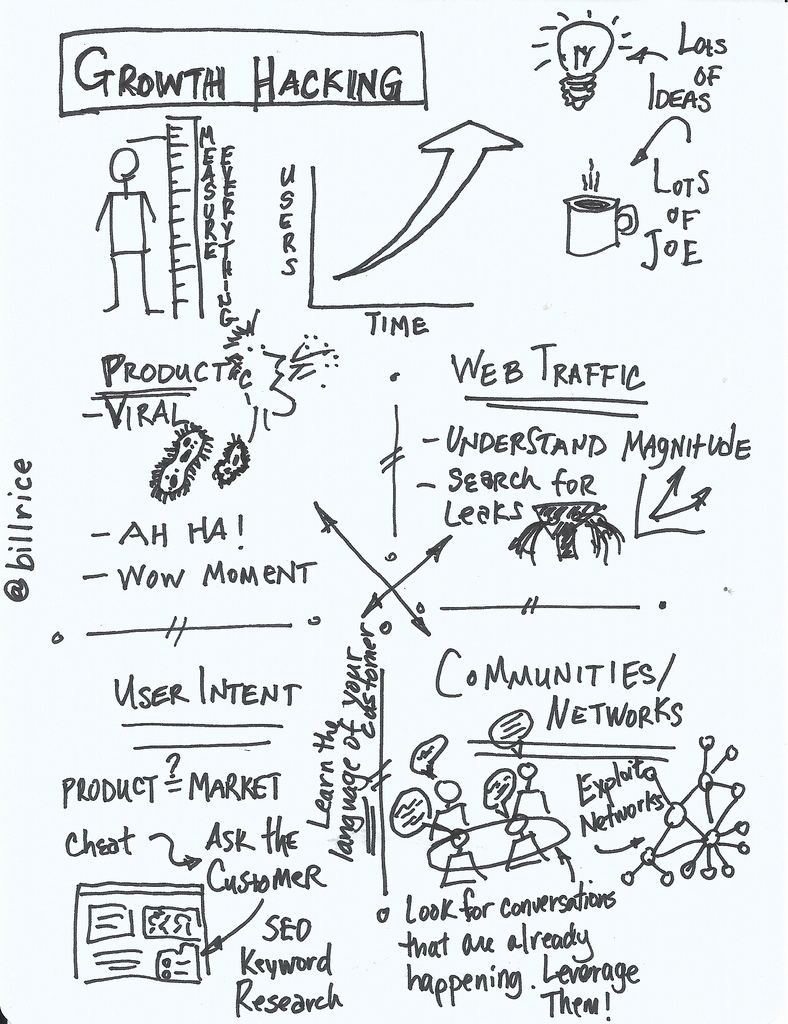 GROWTH HACKING
LOTS
OF
IDEAS
LOTS
OF
JOE
MEASURE
EVERYTHING
USERS
TIME
PRODUCT
- VIRAL
- AH HA!
- WOW MOMENT
WEB TRAFFIC
- UNDERSTAND MAGNITUDE
- SEARCH FOR
LEAKS
@billrice
USER INTENT
PRODUCT ?= MARKET
Cheat
ASK the
CUSTOMER
SEO
Keyword
Research
Learn the
language of your
customer
COMMUNITIES/
NETWORKS
Exploit
Networks
Look for conversations
that are already
happening. Leverage
Them!